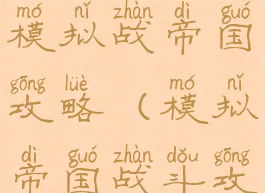 mó nǐ zhàn dì guó
模拟战帝国
gōng lüè mó nǐ
攻略（模拟
dì guó zhàn dǒu gōng
帝国战斗攻